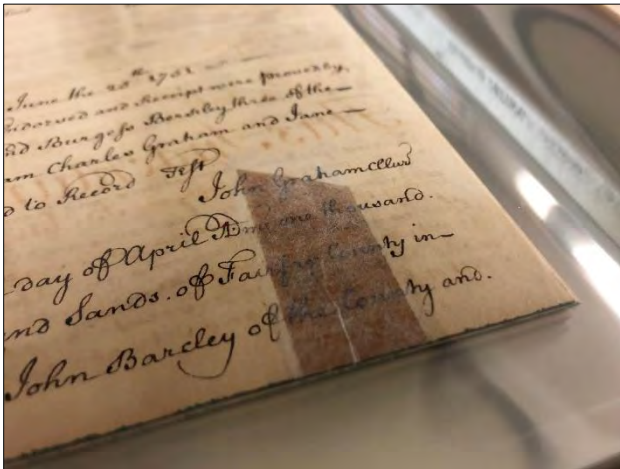 June the 25th 1751
Endorsed and Receipt were proved by
Burgess Berkley three of the
Charles Graham and Jane
d to Record Test
John Graham Cler
day of April A: one thousand.
and Sands. of Fairfax County in
John Barcley of the County and.